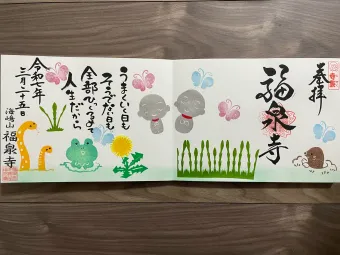 奉拝
福泉寺
うまくいく日も
そうでない日も
全部ひっくるめて
人生だから
令和七年
三月二十五日
福泉寺